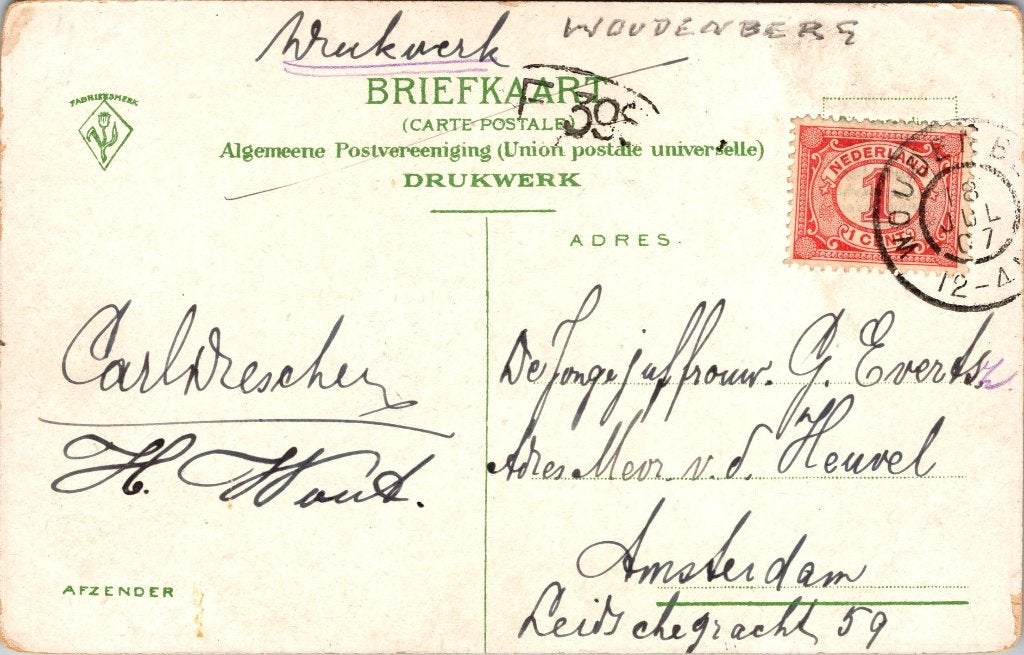 Drukwerk WOUDENBERG
FABRIEKSMERK
BRIEFKAART
F 39
(CARTE POSTALE)
Algemeene Postvereeniging (Union postale universelle)
DRUKWERK
NEDERLAND
1
1 CENT
WOUDENBE
8 JUL 07
12-4N
ADRES.
Carl Drescher
H. Wout.
AFZENDER
De Jongejuffrouw. G. Everts
Adres Mevr. v. d. Heuvel
Amsterdam
Leidschegracht 59